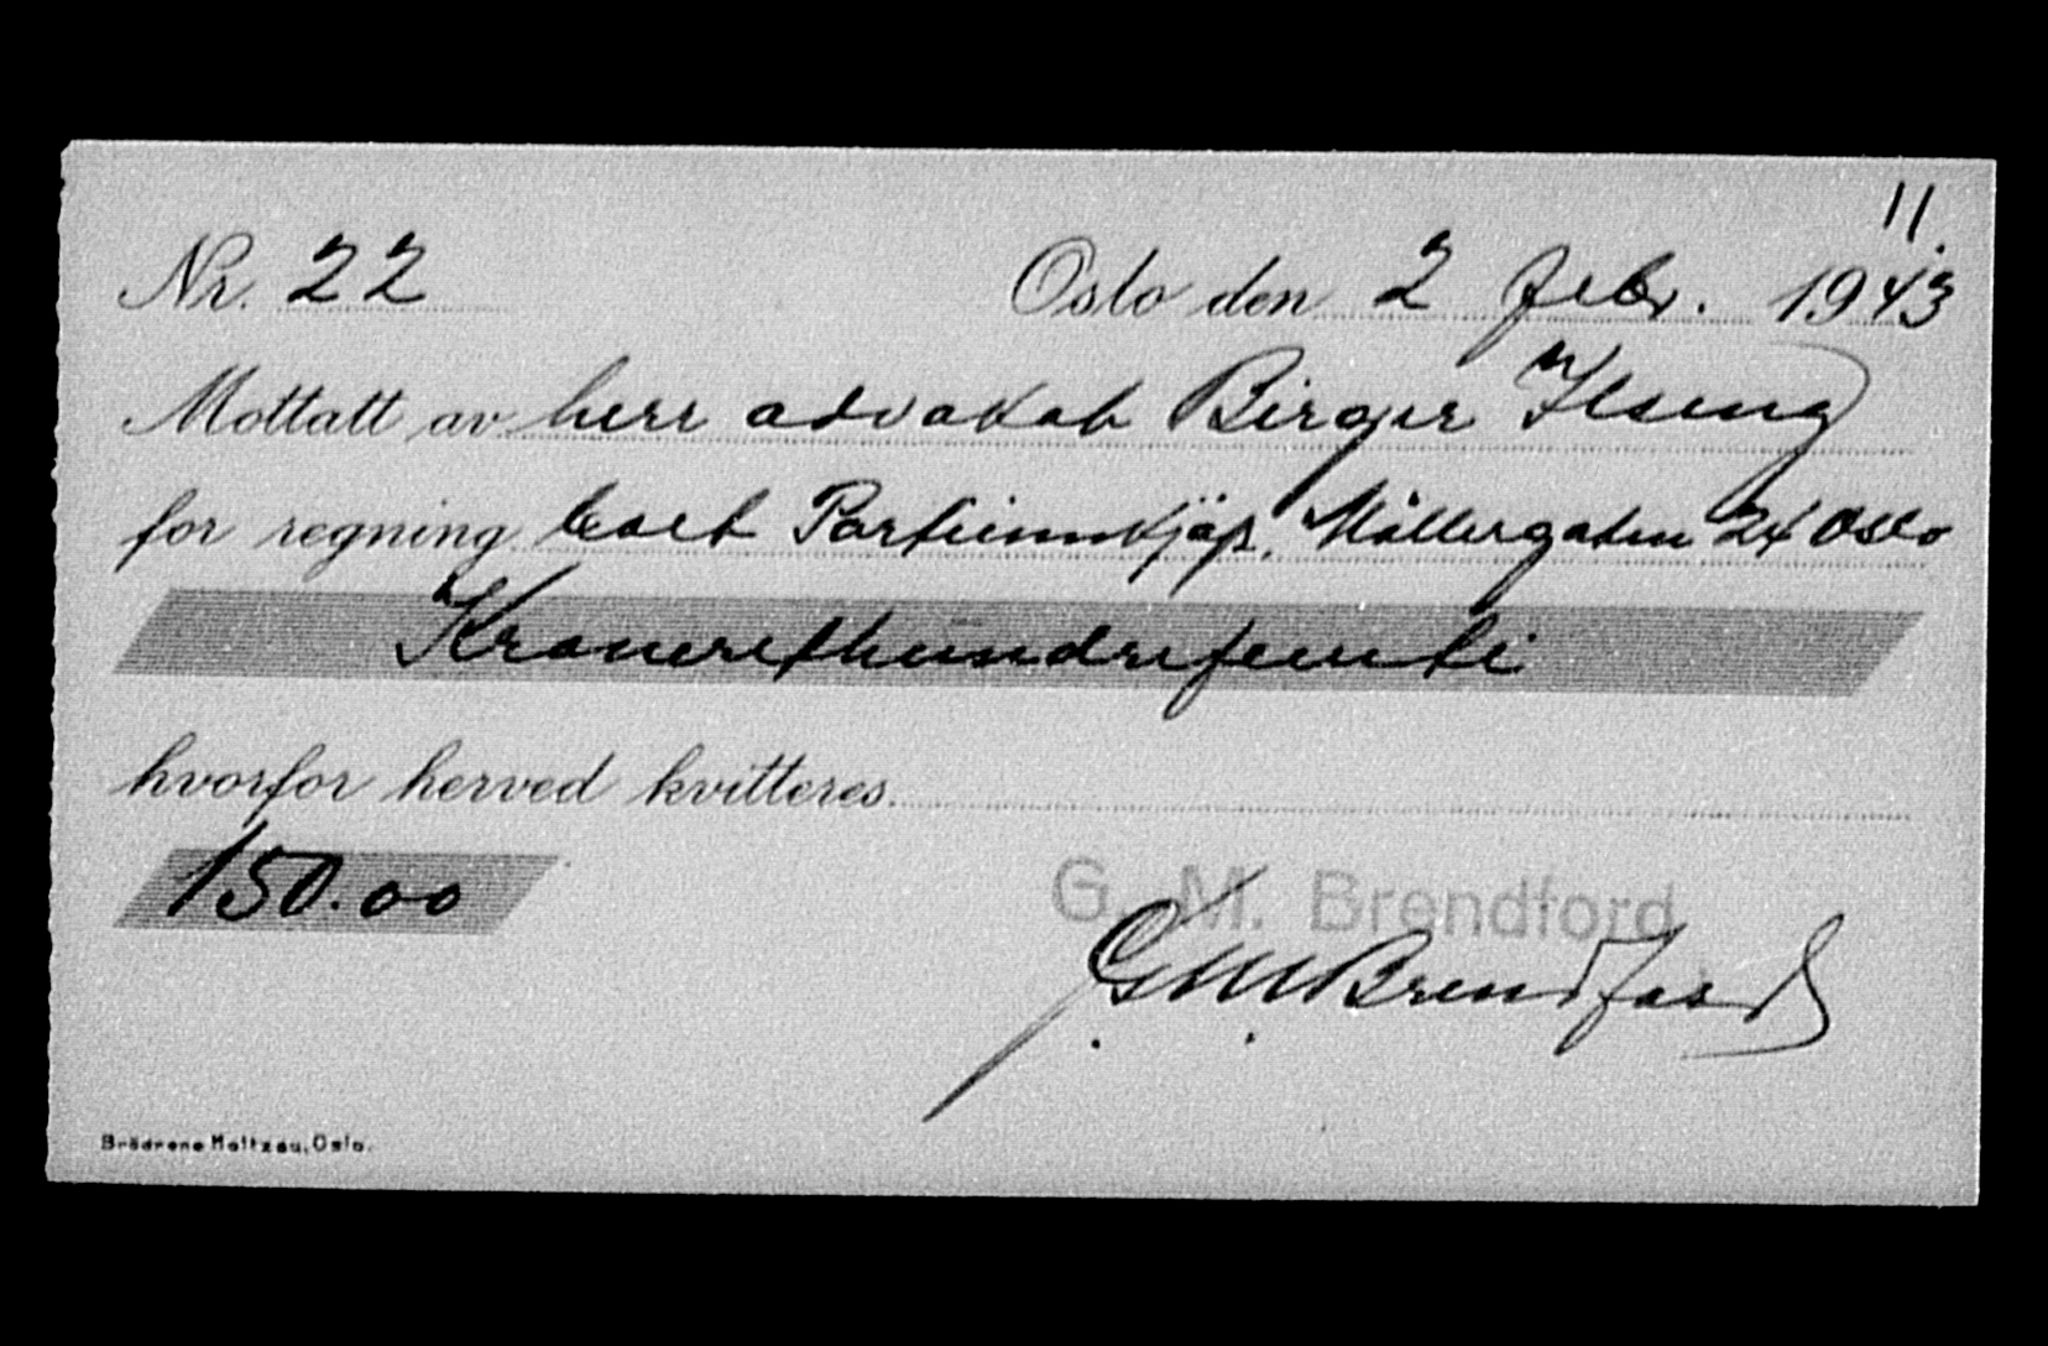 11.
Nr. 22 Oslo den 2 febr. 1943
Mottatt av herr advokat Birger Ilseng
for regning boet Partiinnkjøp. Møllergaten 24 Oslo
Kroneretthundrefemti
hvorfor herved kvitteres
150.00
G. M. Brendford
G M Brendford
Brødrene Moltzau, Oslo.